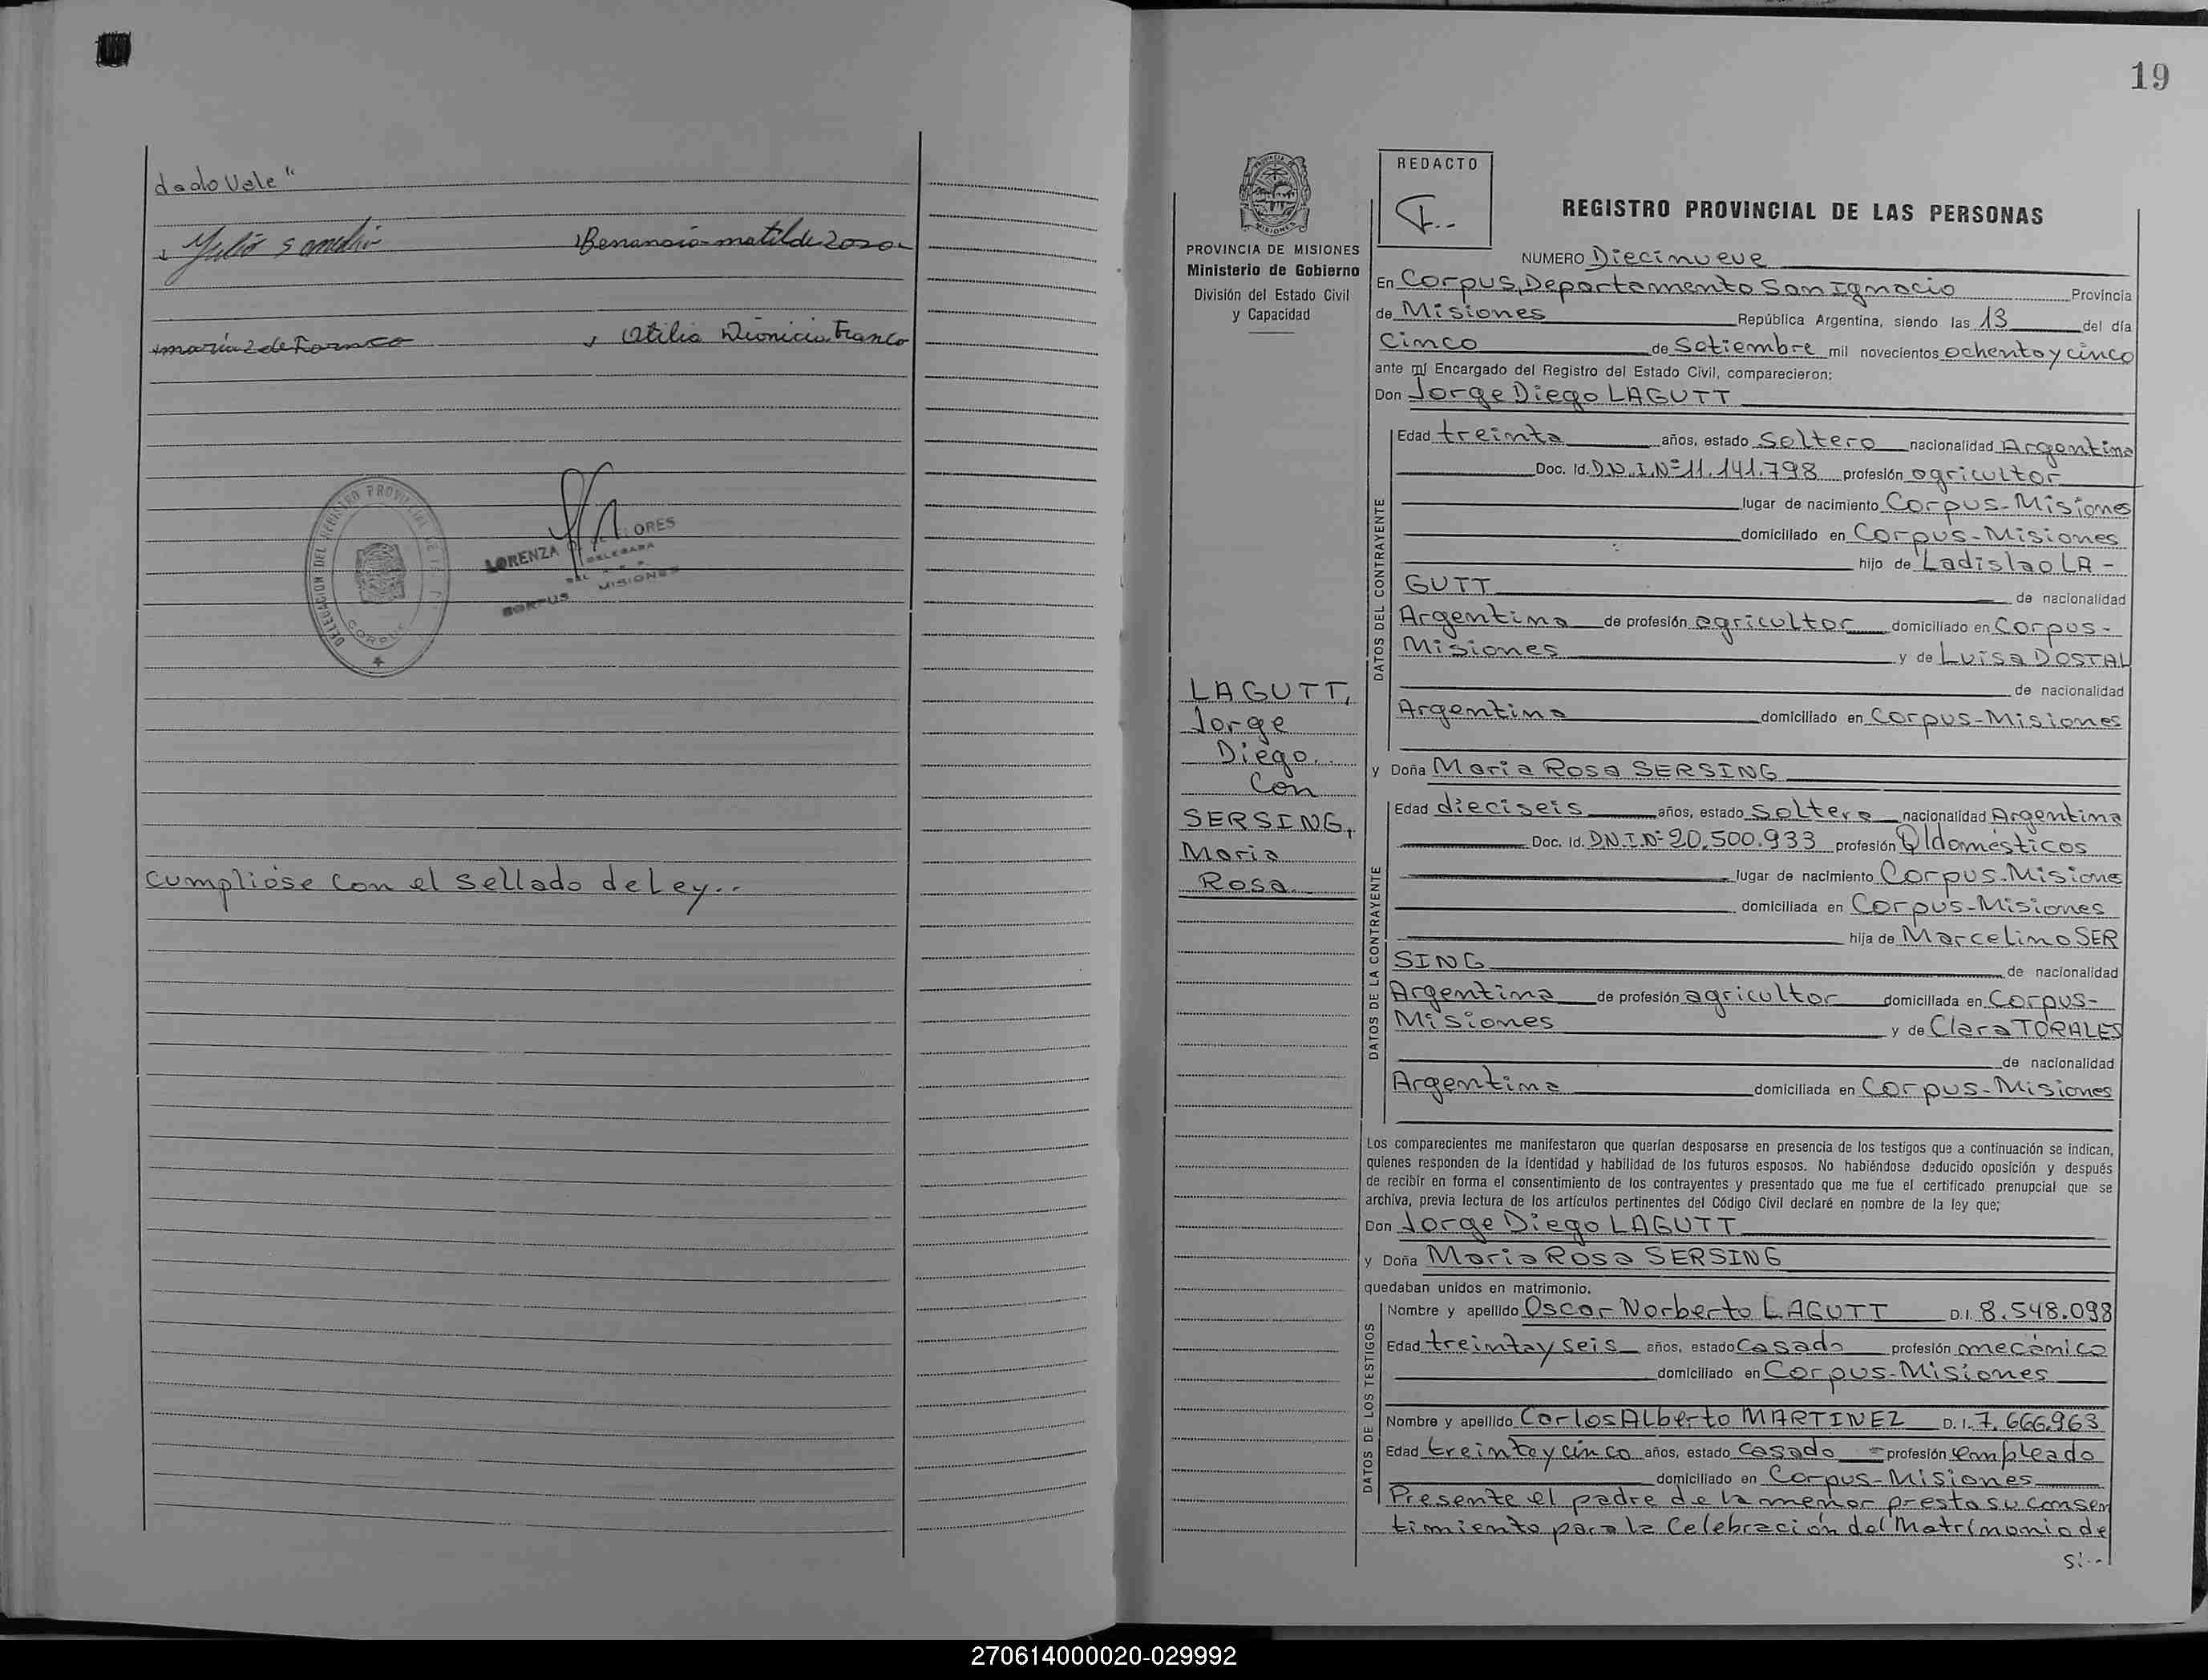 dado Vale"
Benansio matilde
Otilia Dionicia Franco
DELEGACION DEL REGISTRO PROVINCIAL DE
CORPUS
LORENZA
ORES
DELEGADA
CORPUS MISIONES
Cumplióse con el sellado de Ley..
19
PROVINCIA DE MISIONES
Ministerio de Gobierno
División del Estado Civil
y Capacidad
LAGUTT,
Jorge
Diego.
Con
SERSING,
Maria
Rosa.
REDACTO
REGISTRO PROVINCIAL DE LAS PERSONAS
NUMERO Diecinueve
En Corpus, Departamento San Ignacio Provincia
de Misiones República Argentina, siendo las 13 del día
Cinco de Setiembre mil novecientos ochenta y cinco
ante mí Encargado del Registro del Estado Civil, comparecieron:
Don Jorge Diego LAGUTT
DATOS DEL CONTRAYENTE
Edad treinta años, estado Soltero nacionalidad Argentina
Doc. Id. D.N.I.Nº 11.141.798 profesión agricultor
lugar de nacimiento Corpus-Misiones
domiciliado en Corpus-Misiones
hijo de Ladislao LA-
GUTT de nacionalidad
Argentina de profesión agricultor domiciliado en Corpus-
Misiones y de Luisa DOSTAL
de nacionalidad
Argentina domiciliado en Corpus-Misiones
y Doña Maria Rosa SERSING
DATOS DE LA CONTRAYENTE
Edad dieciseis años, estado Soltera nacionalidad Argentina
Doc. Id. D.N.I.Nº 20.500.933 profesión Q/domésticos
lugar de nacimiento Corpus-Misiones
domiciliada en Corpus-Misiones
hija de Marcelino SER
SING de nacionalidad
Argentina de profesión agricultor domiciliada en Corpus-
Misiones y de Clara TORALES
de nacionalidad
Argentina domiciliada en Corpus-Misiones
Los comparecientes me manifestaron que querían desposarse en presencia de los testigos que a continuación se indican,
quienes responden de la identidad y habilidad de los futuros esposos. No habiéndose deducido oposición y después
de recibir en forma el consentimiento de los contrayentes y presentado que me fue el certificado prenupcial que se
archiva, previa lectura de los artículos pertinentes del Código Civil declaré en nombre de la ley que;
Don Jorge Diego LAGUTT
y Doña Maria Rosa SERSING
quedaban unidos en matrimonio.
DATOS DE LOS TESTIGOS
Nombre y apellido Oscar Norberto LAGUTT D.I. 8.548.098
Edad treinta y seis años, estado Casado profesión mecánico
domiciliado en Corpus-Misiones
Nombre y apellido Carlos Alberto MARTINEZ D.I. 7.666.963
Edad treinta y cinco años, estado Casado profesión empleado
domiciliado en Corpus-Misiones
Presente el padre de la menor presta su consen
timiento para la Celebración del Matrimonio de
si--
270614000020-029992